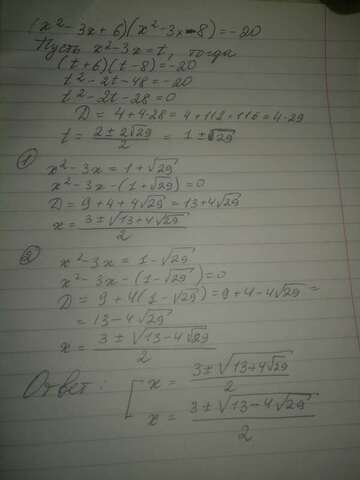 (x²-3x+6)(x²-3x-8)=-20
Пусть x²-3x=t, тогда
(t+6)(t-8)=-20
t²-2t-48=-20
t²-2t-28=0
D=4+4·28=4+112=116=4·29
t=(2±2√29)/2=1±√29
1) x²-3x=1+√29
x²-3x-(1+√29)=0
D=9+4+4√29=13+4√29
x=(3±√(13+4√29))/2
2) x²-3x=1-√29
x²-3x-(1-√29)=0
D=9+4(1-√29)=9+4-4√29=
=13-4√29
x=(3±√(13-4√29))/2
Ответ: [x=(3±√(13+4√29))/2
x=(3±√(13-4√29))/2